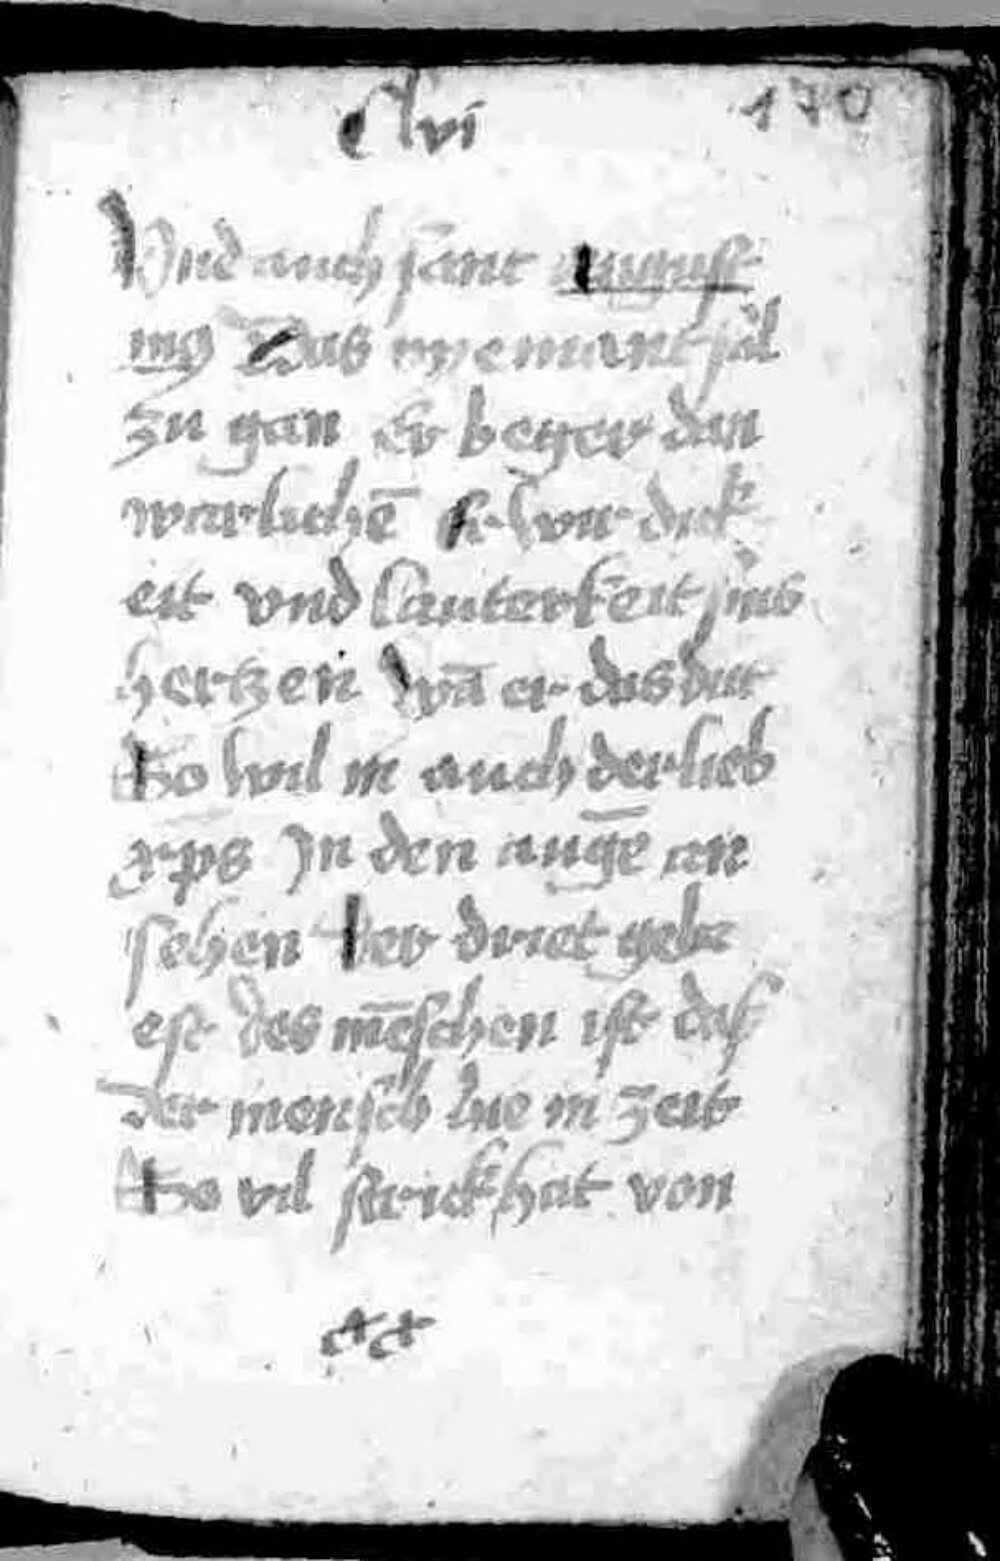 Clvi 170
Vnd auch sant august
ing Das nyemant sol
zu gan Er beger dan
warlichē
eit vnd lauterkeit sins
hertzen wā er das dut
So wil in auch der lieb
xp̄s In den augē an
sehen Der driet gebr
est des mēschen ist daß
der mensch hie in zeit
So vil strick hat von